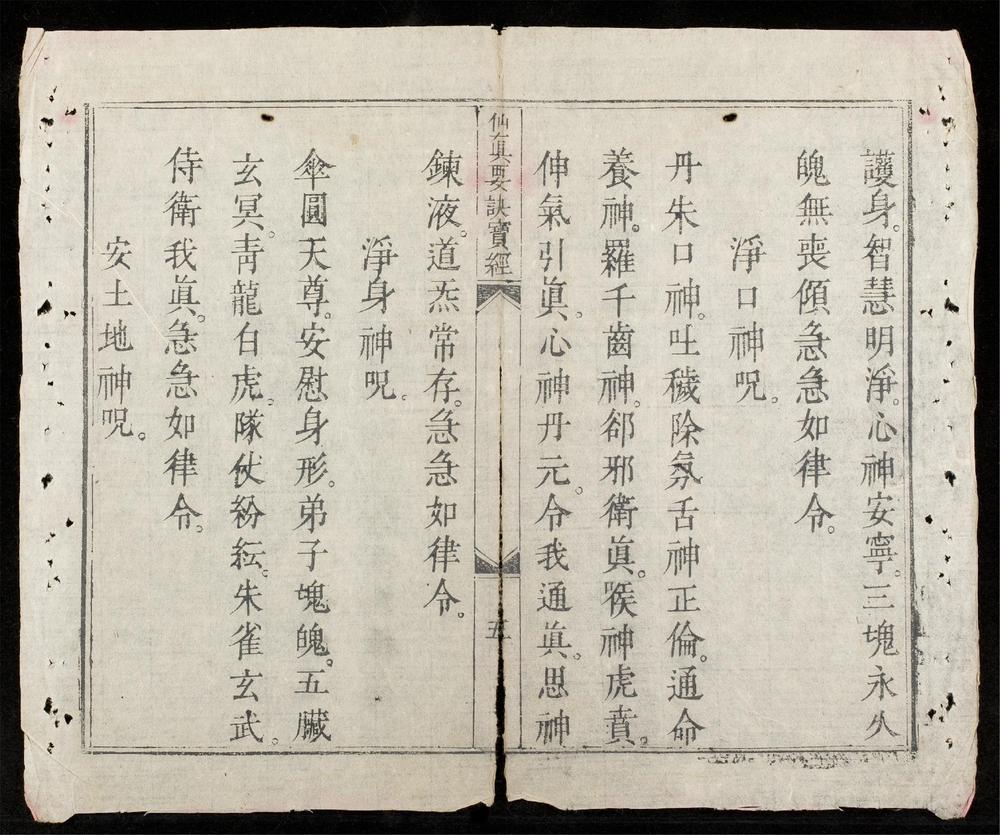 護身。智慧明淨。心神安寧。三塊永久
魄無喪傾急急如律令。
淨口神呪。
丹朱口神。吐穢除氛舌神正倫。通命
養神。羅千齒神。郤邪衛眞。喉神虎賁。
伸氣引眞。心神丹元。令我通眞。思神
仙真要訣寶經
五
鍊液。道炁常存。急急如律令。
淨身神呪。
傘圓天尊。安慰身形。弟子塊魄。五臟
玄冥。靑龍白虎。隊仗紛紜。朱雀玄武。
侍衛我眞。急急如律令。
安土地神呪。